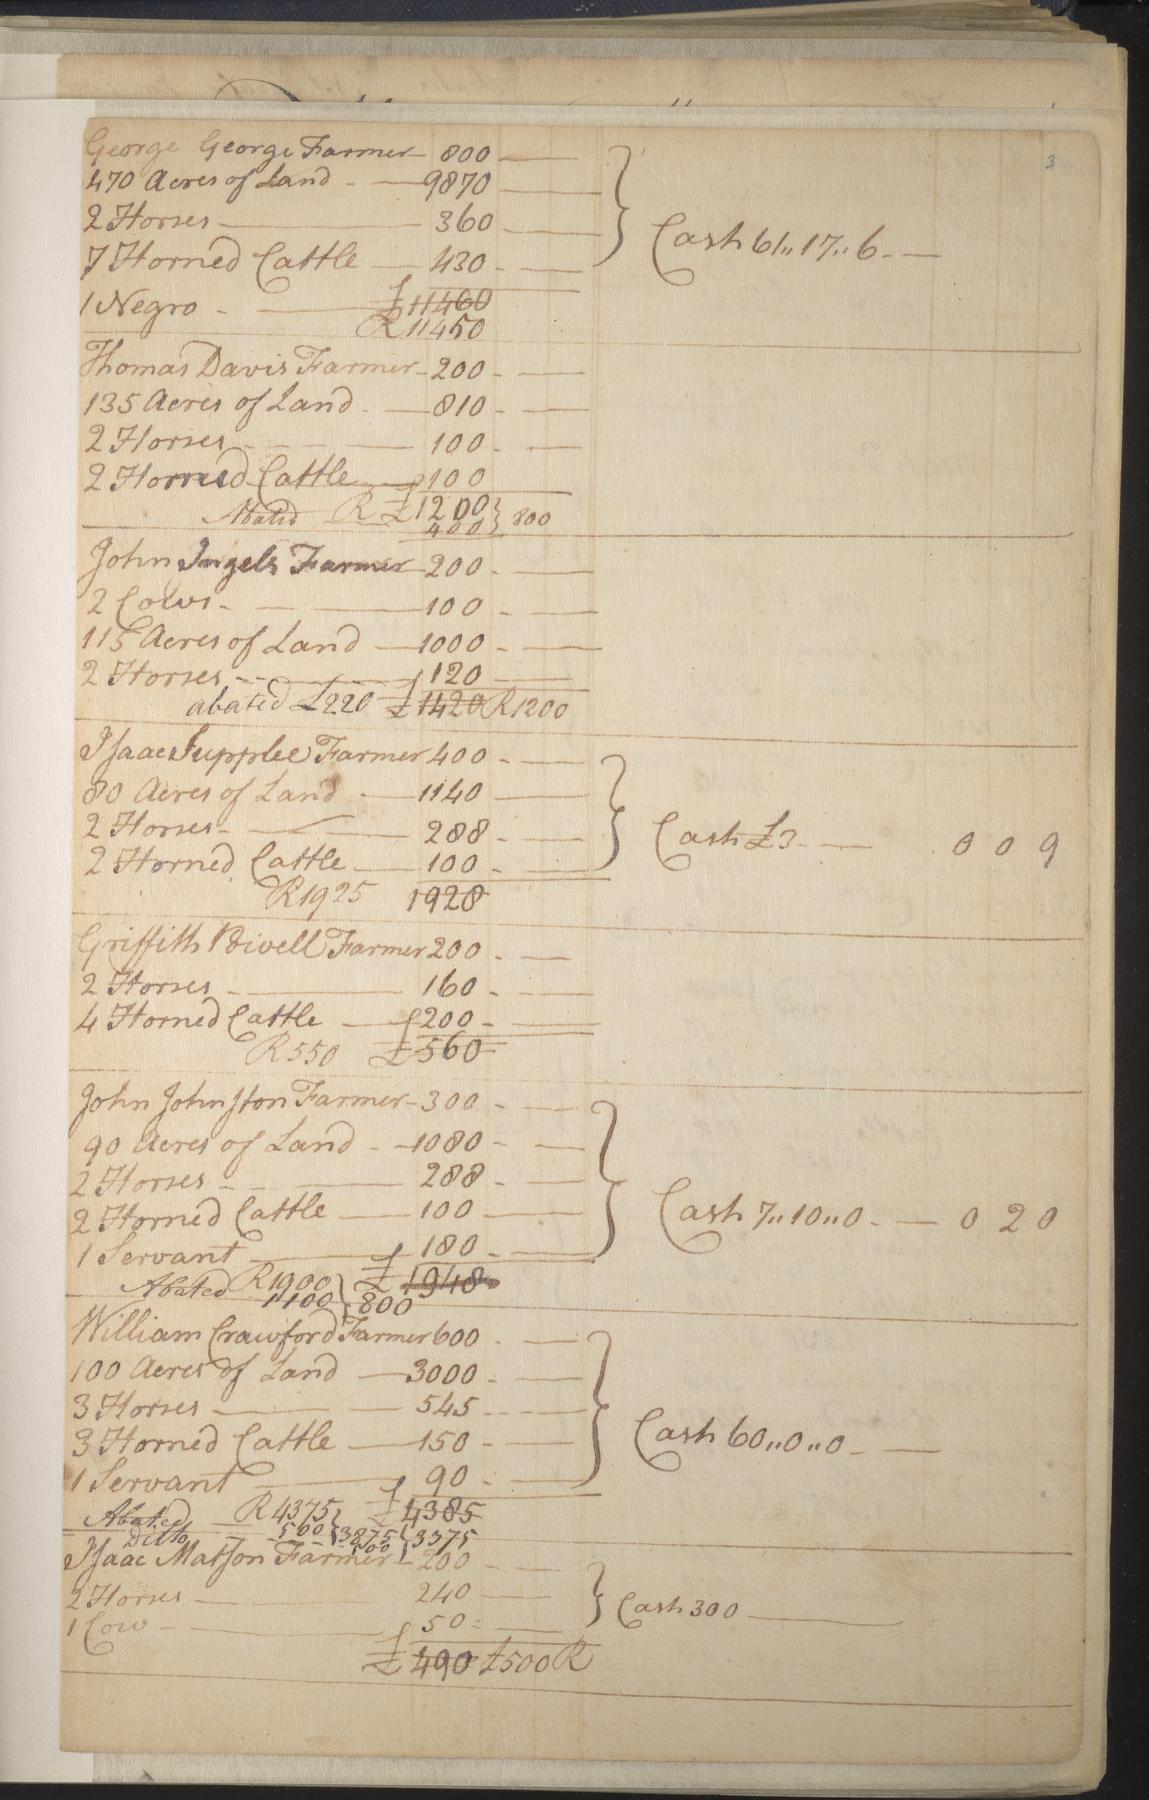 3
George George Farmer - 800
470 Acres of Land - 9870
2 Horses - 360
7 Horned Cattle - 430
Cash 61,, 17,, 6
1 Negro - £ 11460
R 11450
Thomas Davis Farmer - 200
135 Acres of Land - 810
2 Horses - 100
2 Horned Cattle - 100
Abated R £ 1200 } 800
400
John Ingels Farmer 200
2 Cows - 100
115 Acres of Land - 1000
2 Horses - 120
abated £220 £ 1420 R 1200
Isaac Supplee Farmer 400
80 Acres of Land - 1140
2 Horses - 288
Cash £3 - 0 0 9
2 Horned Cattle - 100
R 1925 1928
Griffith Powell Farmer 200
2 Horses - 160
4 Horned Cattle - 200
R 550 £ 560
John Johnston Farmer - 300
90 Acres of Land - 1080
2 Horses - 288
2 Horned Cattle - 100
Cash 7,, 10,, 0 - 0 2 0
1 Servant - 180
Abated R 1900 £ 1948
1100 } 800
William Crawford Farmer 600
100 Acres of Land - 3000
3 Horses - 545
3 Horned Cattle - 150
Cash 60,, 0,, 0
1 Servant - 90
Abated R 4375 £ 4385
Ditto 500 } 3875 { 3375
500
Isaac Matson Farmer - 200
2 Horses - 240
Cash 300
1 Cow - 50
£ 490 £500 R